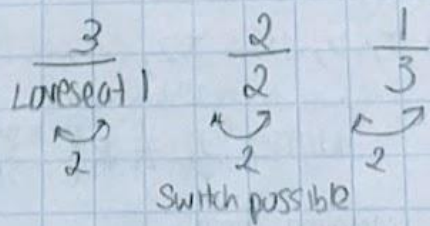 3 2 1
Loveseat 1 2 3
2 2 2
Switch possible